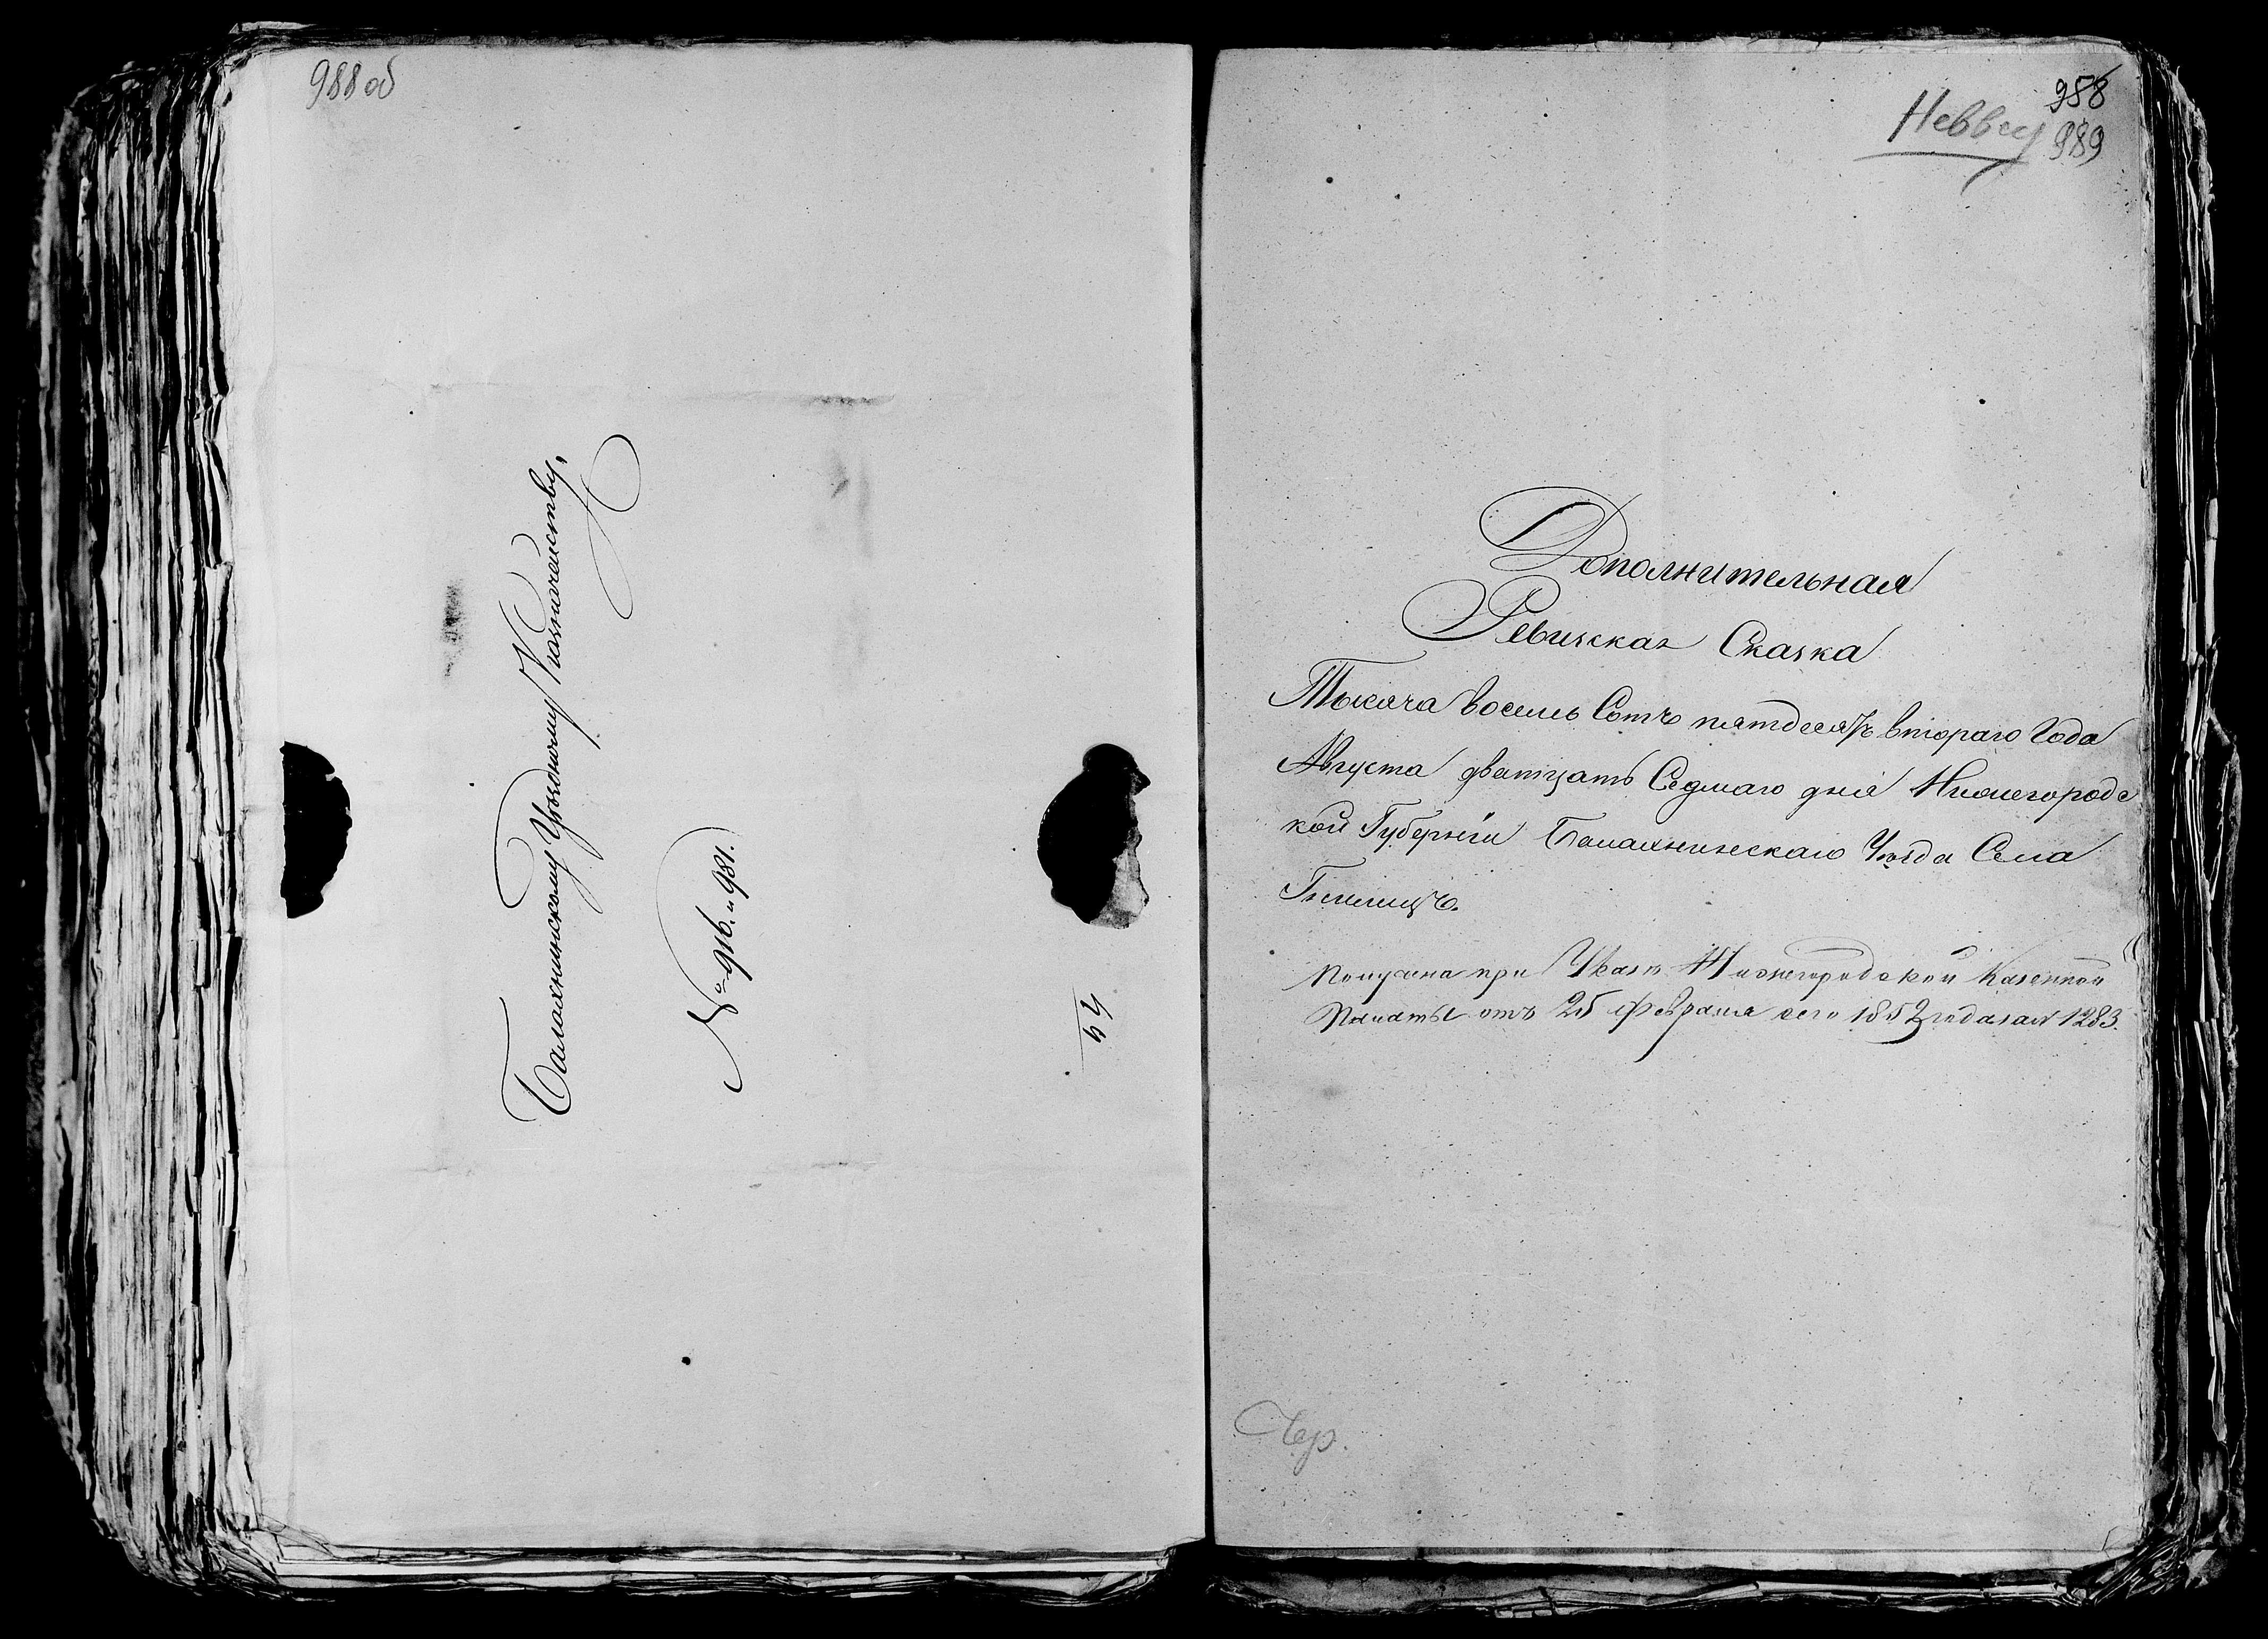 988 об
Балахнинскому Уѣздному Казначейству.
№ 916. и 981.
54
958
989
Дополнительная
Ревизская Сказка
Тысяча восемь Сотъ пятдесятъ втораго Года
Августа дватцать Седмаго дня Нижегородс
кой Губерніи Балахнинскаго Уѣзда Села
Гнилицъ.
Получена при Указѣ Нижегородской Казенной
Палаты отъ 25 февраля сего 1852 года за № 1283.